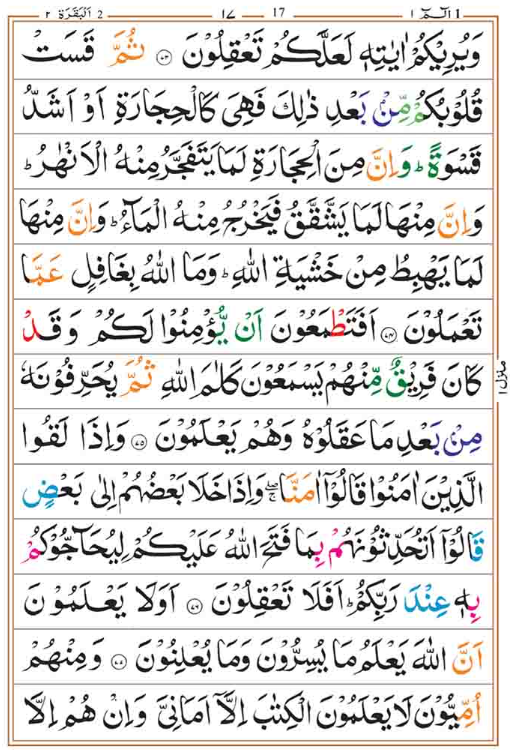 2 اَلْبَقَرَة ٢ ١٧ 17 الٓـمّٓ ١ 1
وَيُرِيْكُمْ اٰيٰتِهٖ لَعَلَّكُمْ تَعْقِلُوْنَ ﴿۷۳﴾ ثُمَّ قَسَتْ
قُلُوْبُكُمْ مِّنْۢ بَعْدِ ذٰلِكَ فَهِىَ كَالْحِجَارَةِ اَوْ اَشَدُّ
قَسْوَةً ؕ وَاِنَّ مِنَ الْحِجَارَةِ لَمَا يَتَفَجَّرُ مِنْهُ الْاَنْهٰرُ ؕ
وَاِنَّ مِنْهَا لَمَا يَشَّقَّقُ فَيَخْرُجُ مِنْهُ الْمَآءُ ؕ وَاِنَّ مِنْهَا
لَمَا يَهْبِطُ مِنْ خَشْيَةِ اللّٰهِ ؕ وَمَا اللّٰهُ بِغَافِلٍ عَمَّا
تَعْمَلُوْنَ ﴿۷۴﴾ اَفَتَطْمَعُوْنَ اَنْ يُّؤْمِنُوْا لَكُمْ وَقَدْ
كَانَ فَرِيْقٌ مِّنْهُمْ يَسْمَعُوْنَ كَلٰمَ اللّٰهِ ثُمَّ يُحَرِّفُوْنَهٗ
مِنْۢ بَعْدِ مَا عَقَلُوْهُ وَهُمْ يَعْلَمُوْنَ ﴿۷۵﴾ وَاِذَا لَقُوا
الَّذِيْنَ اٰمَنُوْا قَالُوْٓا اٰمَنَّا ۖۚ وَاِذَا خَلَا بَعْضُهُمْ اِلٰى بَعْضٍ
قَالُوْٓا اَتُحَدِّثُوْنَهُمْ بِمَا فَتَحَ اللّٰهُ عَلَيْكُمْ لِيُحَآجُّوْكُمْ
بِهٖ عِنْدَ رَبِّكُمْ ؕ اَفَلَا تَعْقِلُوْنَ ﴿۷۶﴾ اَوَلَا يَعْلَمُوْنَ
اَنَّ اللّٰهَ يَعْلَمُ مَا يُسِرُّوْنَ وَمَا يُعْلِنُوْنَ ﴿۷۷﴾ وَمِنْهُمْ
اُمِّيُّوْنَ لَا يَعْلَمُوْنَ الْكِتٰبَ اِلَّآ اَمَانِىَّ وَاِنْ هُمْ اِلَّا
منزل ١